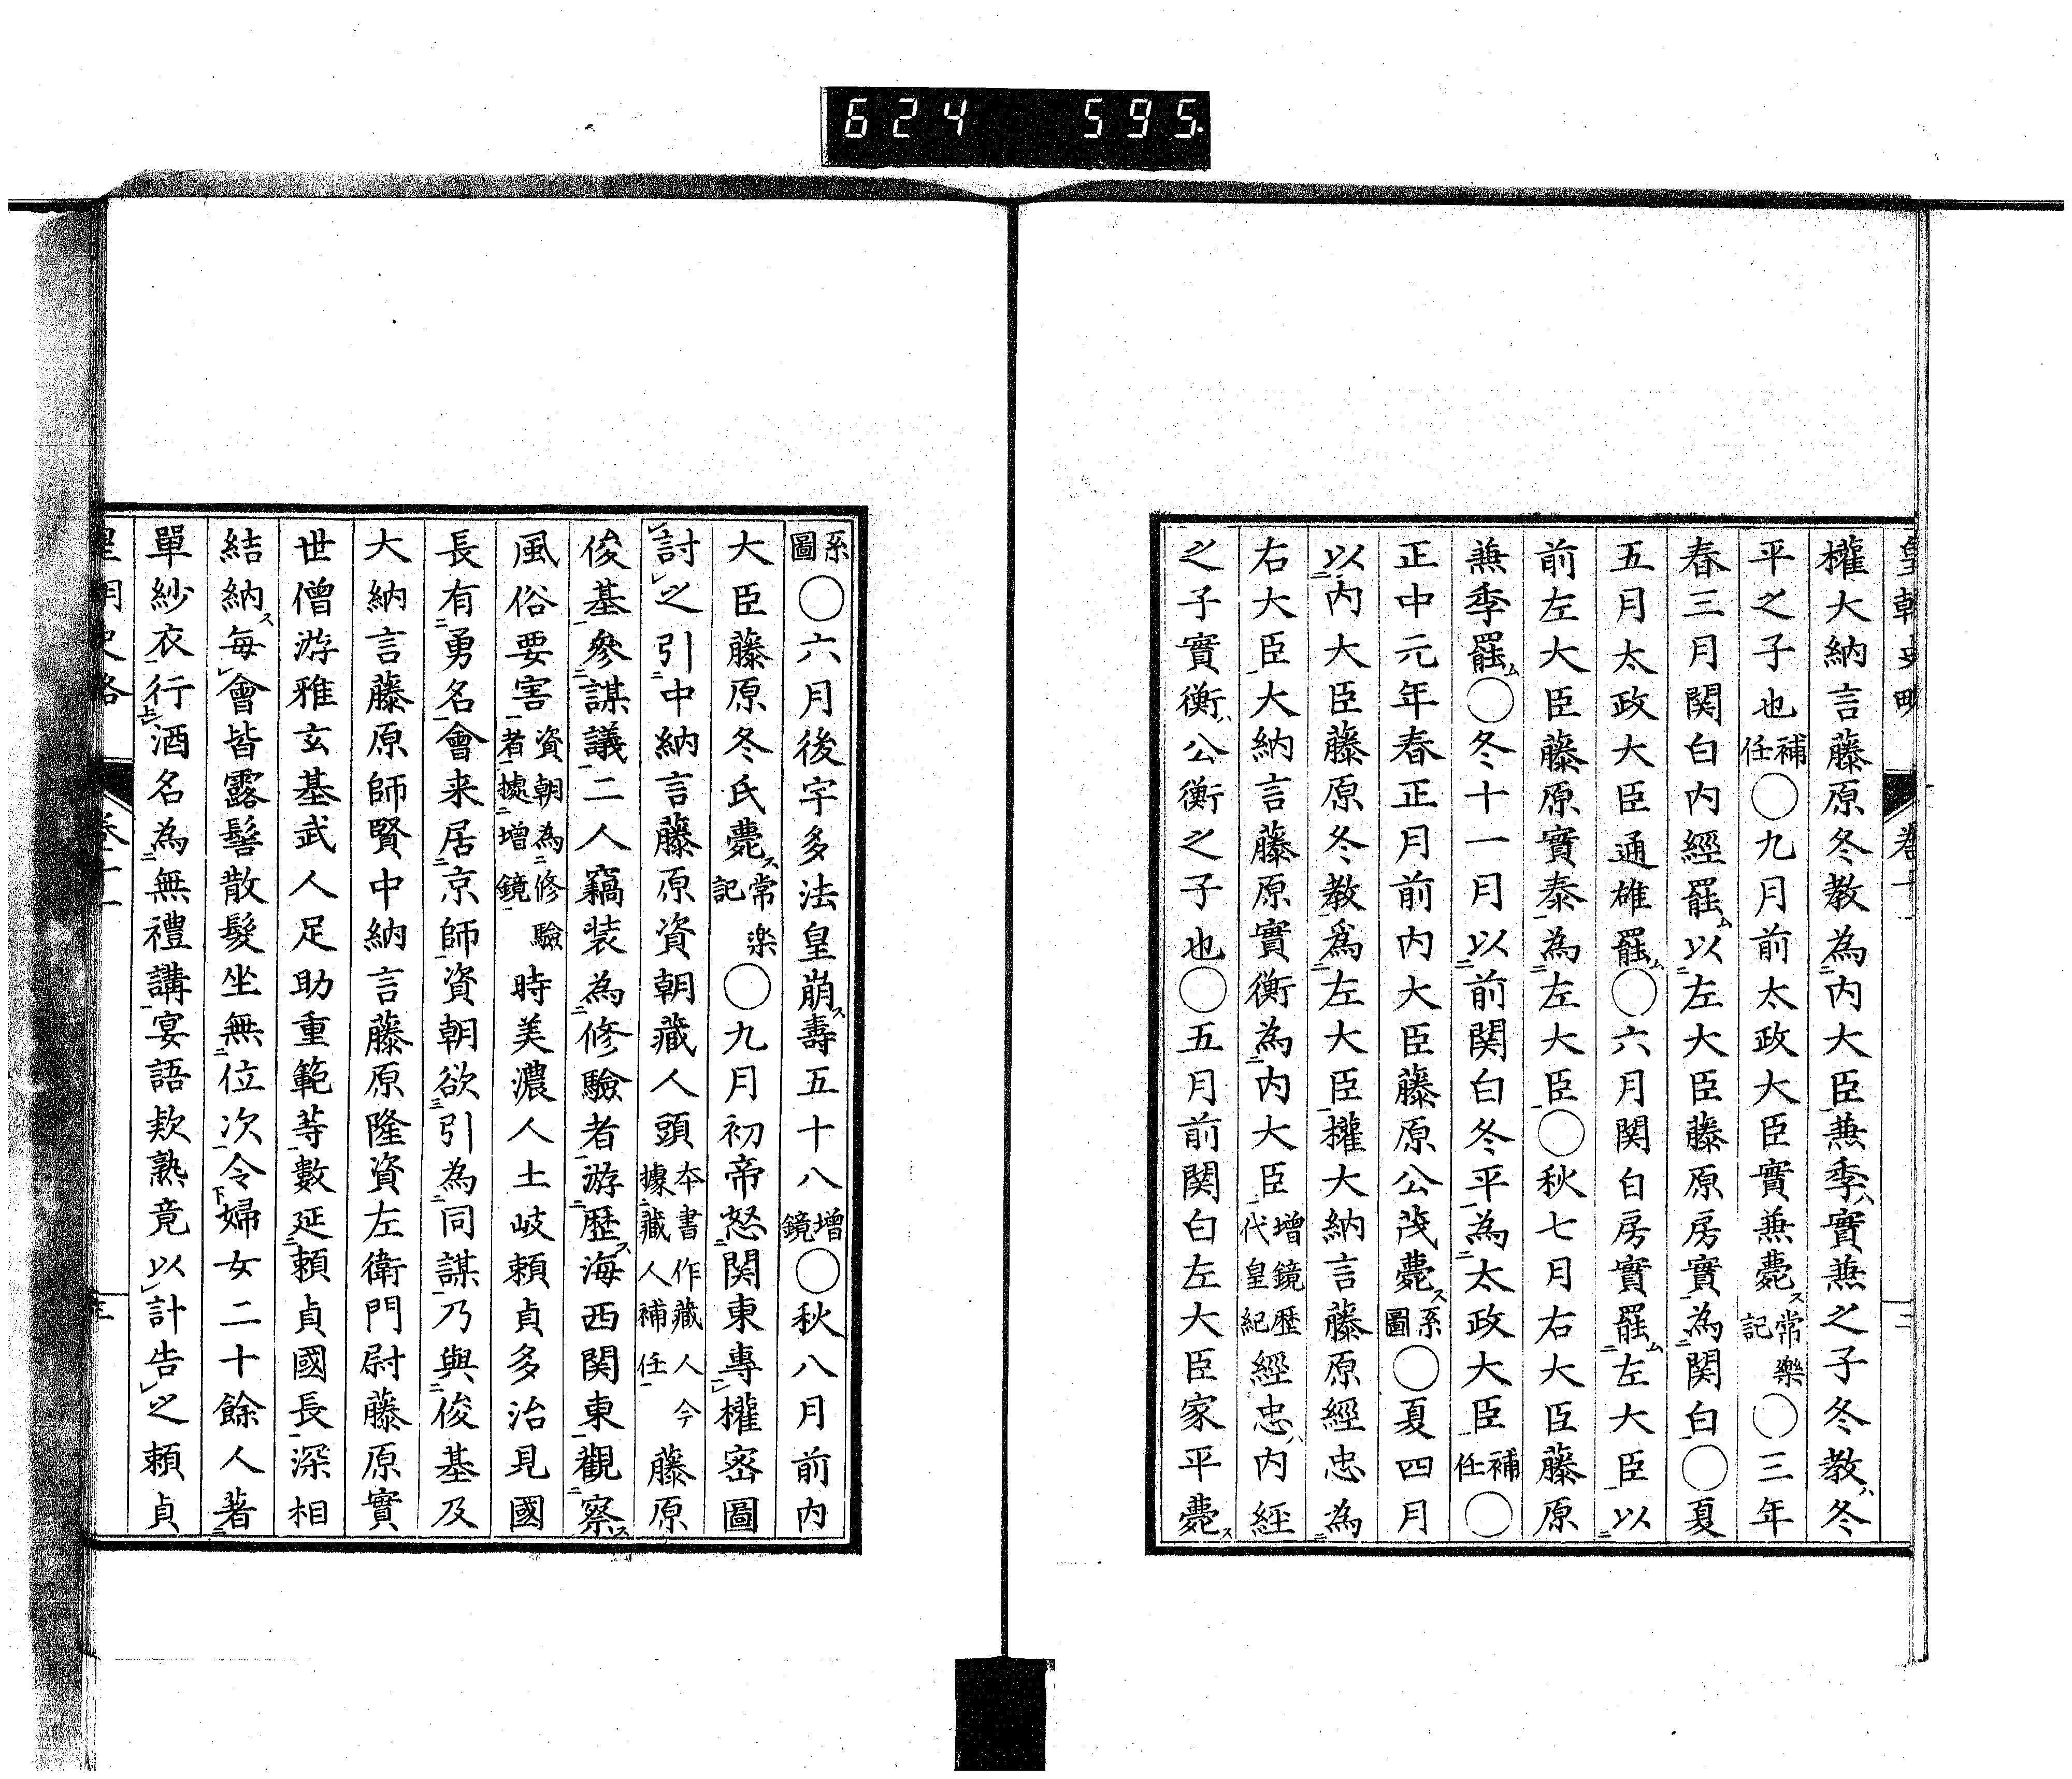 624 595
皇朝史略 卷十一
權大納言藤原冬教為内大臣兼季實兼之子冬教冬
平之子也補任〇九月前太政大臣實兼薨常樂記〇三年
春三月関白内經罷以左大臣藤原房實為関白〇夏
五月太政大臣通雄罷〇六月関白房實罷左大臣以
前左大臣藤原實泰為左大臣〇秋七月右大臣藤原
兼季罷〇冬十一月以前関白冬平為太政大臣補任〇
正中元年春正月前内大臣藤原公茂薨系圖〇夏四月
以内大臣藤原冬教爲左大臣權大納言藤原經忠為
右大臣大納言藤原實衡為内大臣增鏡歷代皇紀經忠内經
之子實衡公衡之子也〇五月前関白左大臣家平薨
系圖〇六月後宇多法皇崩壽五十八增鏡〇秋八月前内
大臣藤原冬氏薨常楽記〇九月初帝怒関東專權密圖
討之引中納言藤原資朝藏人頭本書作藏人今據藏人補任藤原
俊基參謀議二人竊装為修驗者游歷海西関東觀察
風俗要害資朝為修驗者據增鏡時美濃人土岐頼貞多治見國
長有勇名會来居京師資朝欲引為同謀乃與俊基及
大納言藤原師賢中納言藤原隆資左衛門尉藤原實
世僧游雅玄基武人足助重範等數延頼貞國長深相
結納每會皆露髻散髮坐無位次令婦女二十餘人著
單紗衣行酒名為無禮講宴語欵熟竟以計告之頼貞